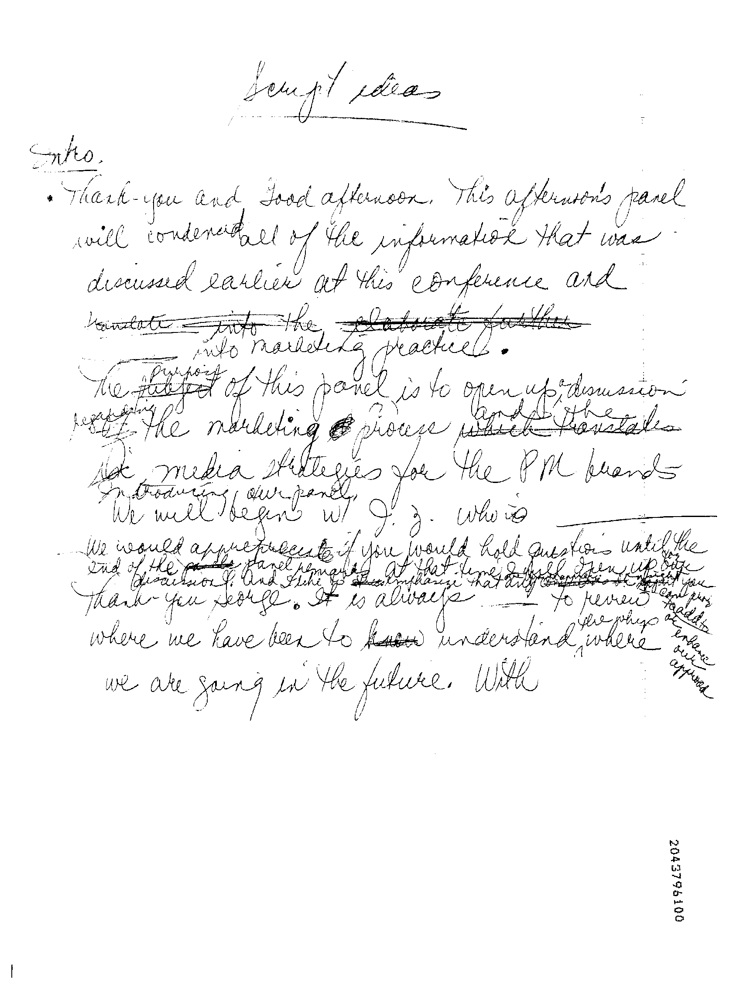 Script ideas
Intro.
• Thank-you and Good afternoon. This afternoon's panel
will condense all of the information that was
discussed earlier at this conference and
translate into the elaborate further
into marketing practice.
purpose
The subject of this panel is to open up a discussion
regarding and the
of the marketing process which translates
media strategies for the PM brands
Introducing our panel,
We will begin w/ J. Z. who is
We would appreciate if you would hold questions until the
end of the panel remarks at that time I will open up our
discussion. and I like to emphasize that any
Thank-you George. It is always to review
the phys
where we have been to know understand, where
we are going in the future. With
you
can
to add to
or
enhance
our
approved
2043796100